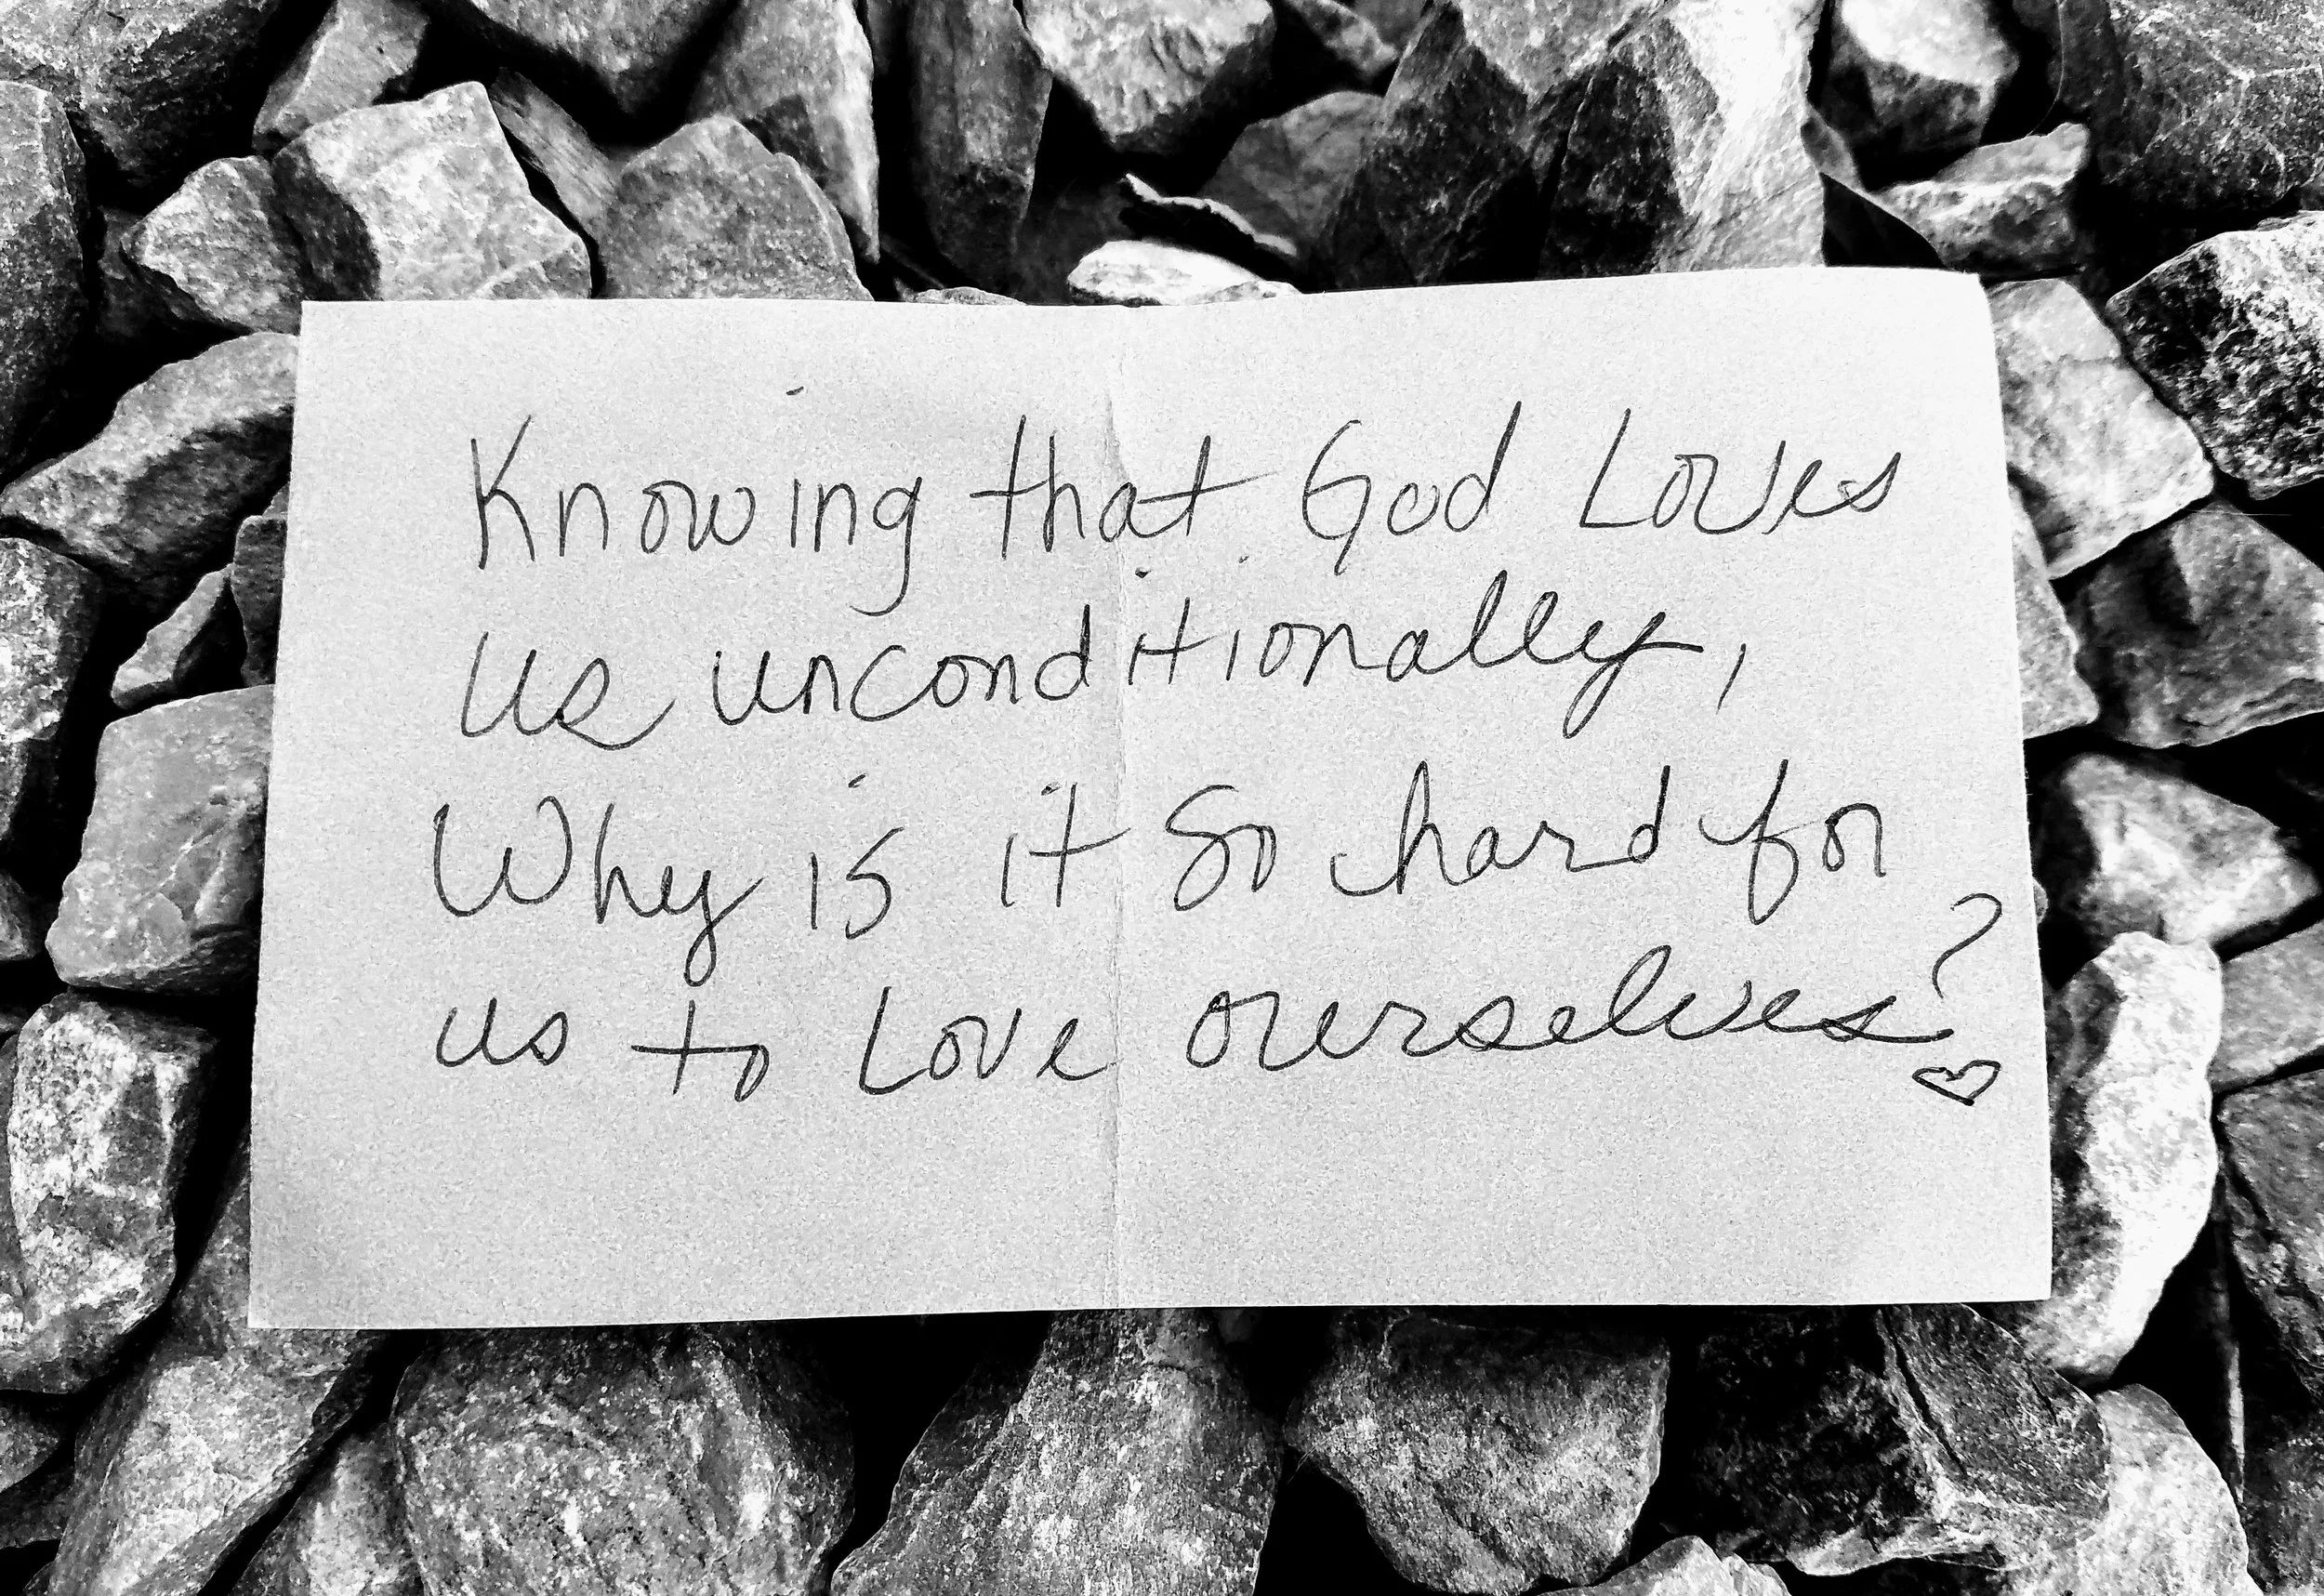 Knowing that God Loves
us unconditionally,
Why is it So hard for
us to Love ourselves?